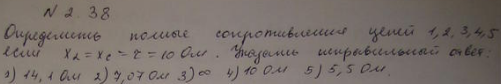 N 2 38
Определить полные сопротивления цепей 1, 2, 3, 4, 5
если x₂ = x_c = r = 10 Ом. Указать неправильный ответ:
1) 14,1 Ом 2) 7,07 Ом 3) ∞ 4) 10 Ом 5) 5,5 Ом.